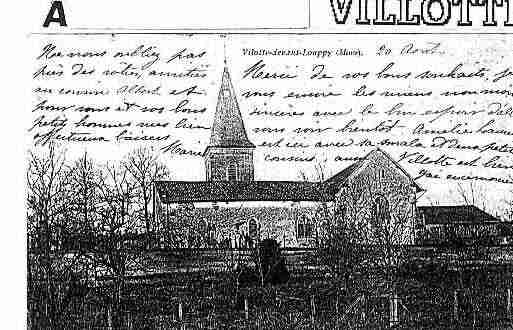 A VILLOTTE
Vilotte-devant-Louppy (Meuse). 20 Août
Ne nous oubliez pas
près des vôtres, amitiés
au cousin Albert et
pour vous et vos bons
petits hommes mes bien
affectueux baisers
Marie
Merci de vos bons souhaits, je
vous envoie les miens non moins
sincères avec le bon espoir d'aller
vous voir bientôt Amélie
est ici avec sa smala et deux petits
cousins, aussi Villotte est bien